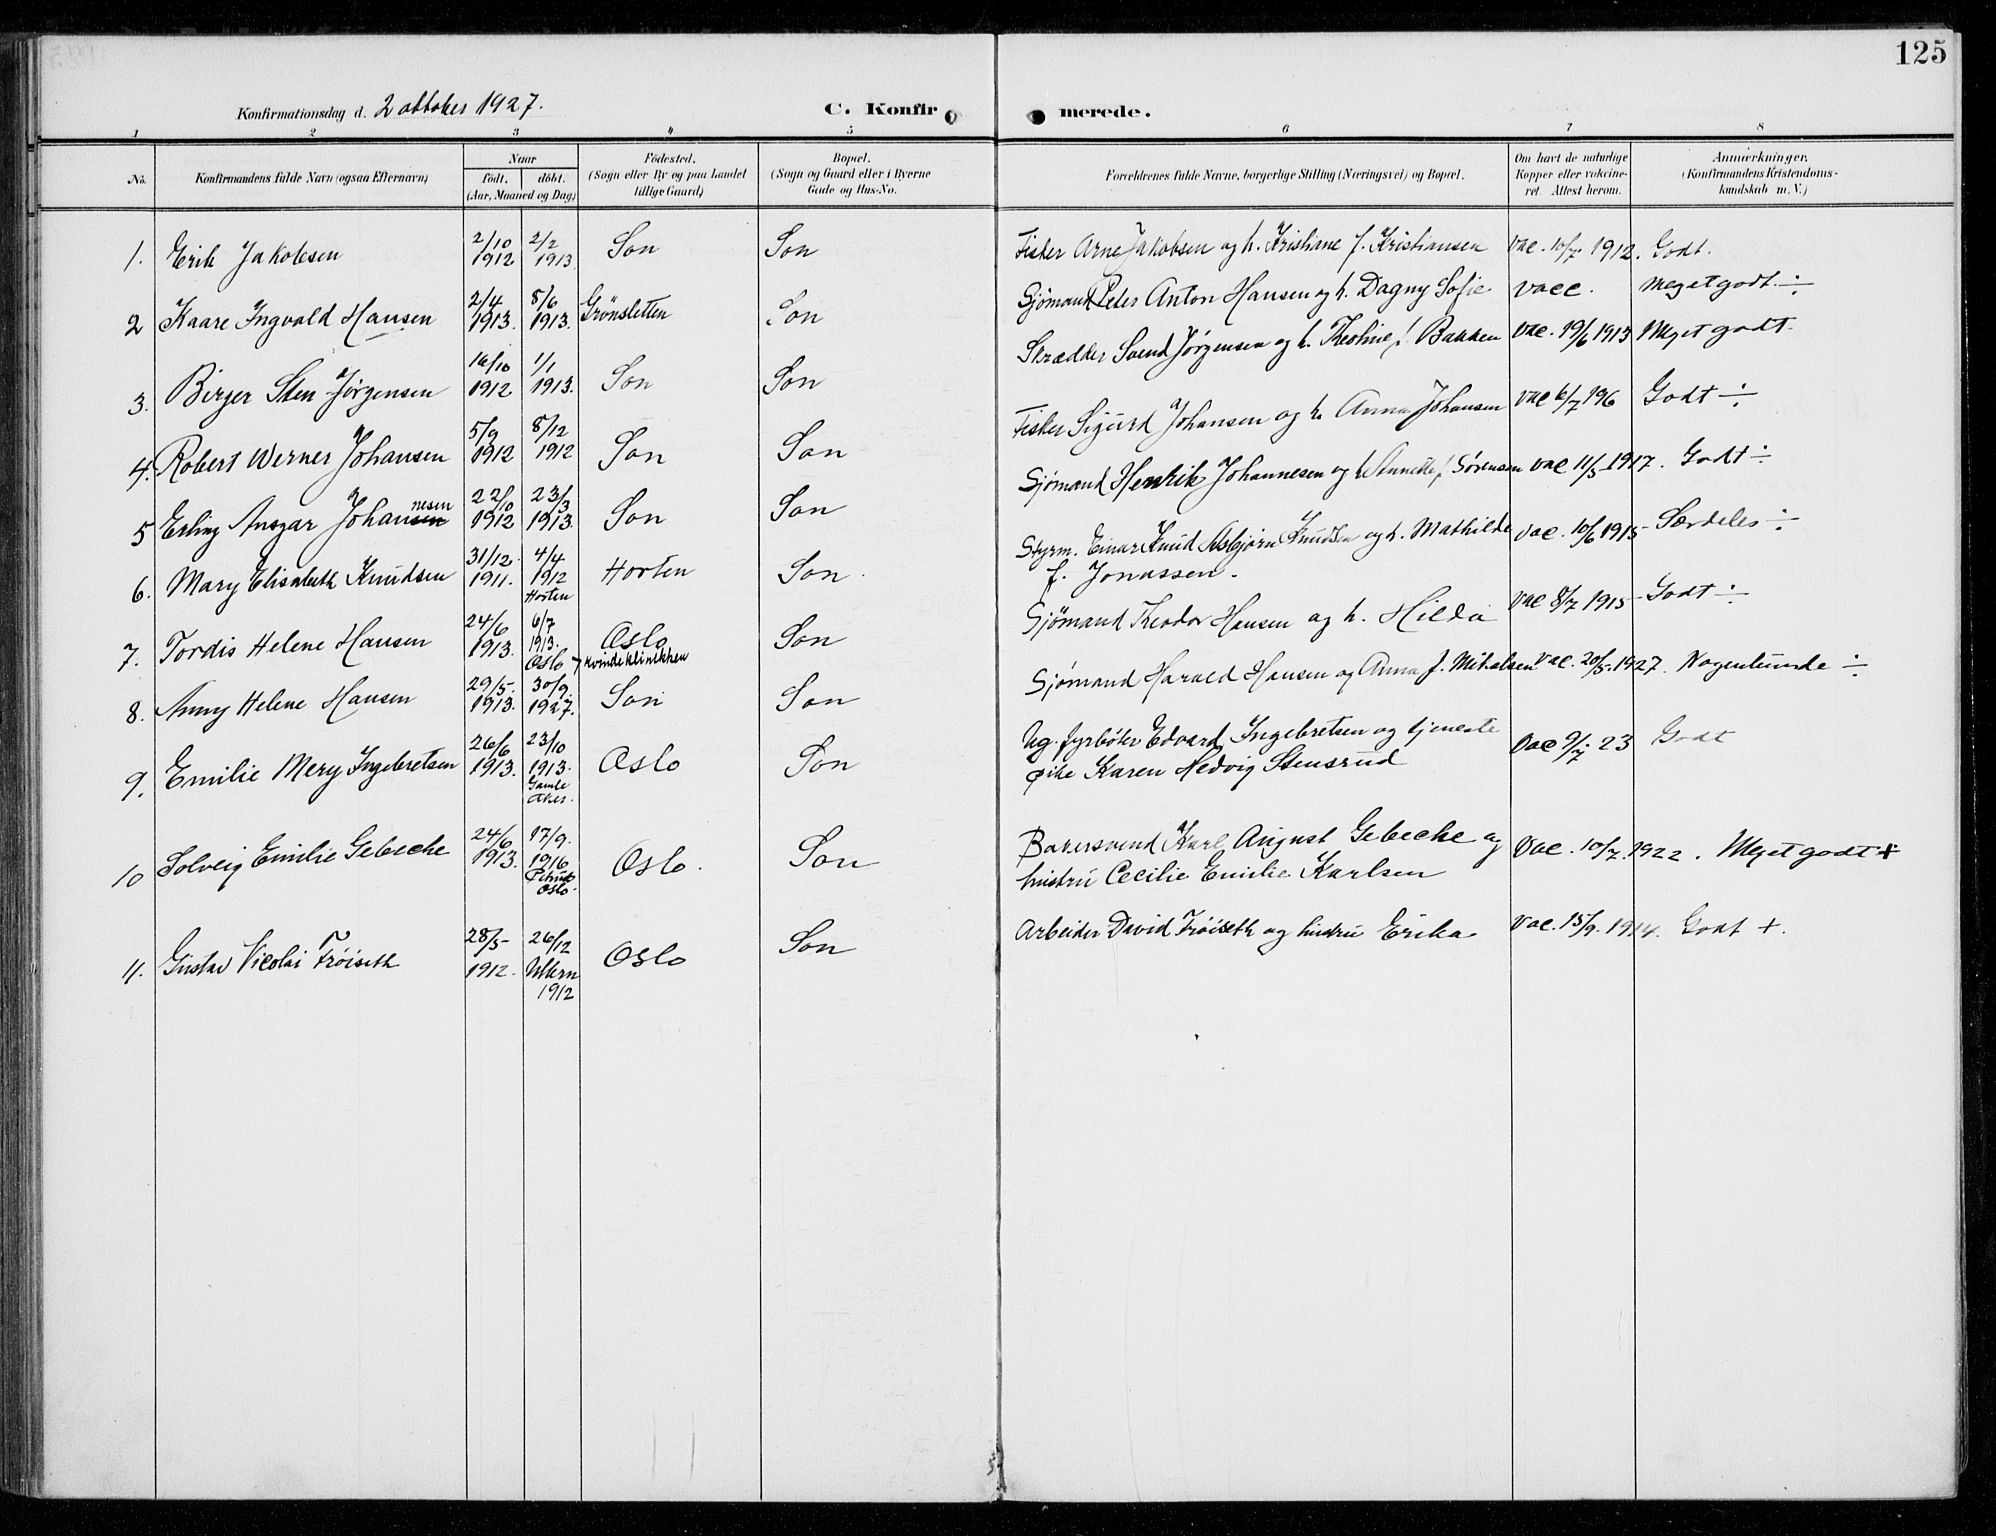 125
Konfirmationsdag d. 2 oktober 1927. C. Konfirmerede.
1 2 3 4 5 6 7 8
No. Konfirmandens fulde Navn (ogsaa Efternavn) Naar født. døbt. (Aar, Maaned og Dag) Fødested. (Sogn eller By og paa Landet tillige Gaard) Bopæl. (Sogn og Gaard eller i Byerne Gade og Hus-No. Forældrenes fulde Navne, borgerlige Stilling (Næringsvei) og Bopæl. Om havt de naturlige Kopper eller vakcineret. Attest herom. Anmærkninger. (Konfirmandens Kristendomskundskab m. V.)
1. Erik Jakobsen 2/10 1912 2/2 1913 Son Son Fisker Arne Jakobsen og h. Kristiane f. Kristiansen Vac. 10/7 1912. Godt.
2 Kaare Ingvald Hansen 2/4 1913. 8/6 1913. Grønsletten Son Sjømand Peder Anton Hansen og h. Dagny Sofie Vacc. Meget godt ÷
3. Birger Sten Jørgensen 16/10 1912 1/1 1913. Son Son Skrædder Svend Jørgensen og h. Theoline f. Bakken Vac. 19/6 1913 Meget godt.
4. Robert Werner Johansen 5/9 1912 8/12 1912 Son Son Fisker Sigurd Johansen og h. Anna Johansen Vac 6/7 196 Godt ÷
5 Erling Ansgar Johansen nesen 22/10 1912 23/3 1913. Son Son Sjømand Henrik Johannesen og h. Annette f. Sørensen Vac 11/5 1917. Godt ÷
6. Mary Elisabeth Knudsen 31/12. 1911. 4/4 1912 Horten Horten Son. Styrm. Einar Knud Asbjørn Knudsen og h. Mathilde
f. Jonassen. Vac. 10/6 1915 Særdeles ÷
7. Tordis Helene Hansen 24/6 1913. 6/7 1913. Oslo Oslo Kvindeklinikken Son Sjømand Theodor Hansen og h. Hilda Vac 8/7 1915 Godt ÷
8. Anny Helene Hansen 29/5. 1913. 30/9. 1927. Son Son Sjømand Harald Hansen og Anna f. Mikalsen Vac. 20/5. 1927. Nogenlunde ÷
9. Emilie Mery Ingebretsen 26/6 1913. 23/10 1913. Gamle Aker. Oslo Son Ug. fyrbøter Edvard Ingebretsen og tjeneste
pike Karen Hedvig Stensrud Vac 9/7 23 Godt
10 Solveig Emilie Gebecke 24/6 1913. 17/9. 1916 Oslo. Oslo. Son Bakersvend Karl August Gebecke og
hustru Cecilie Emilie Karlsen Vac. 10/7. 1922. Meget godt +
11. Gustav Nicolai Trøiseth 28/5 1912. 26/12 Ullern 1912 Oslo Son Arbeider David Trøiseth og hustru Erika Vac. 15/9. 1914. Godt +.